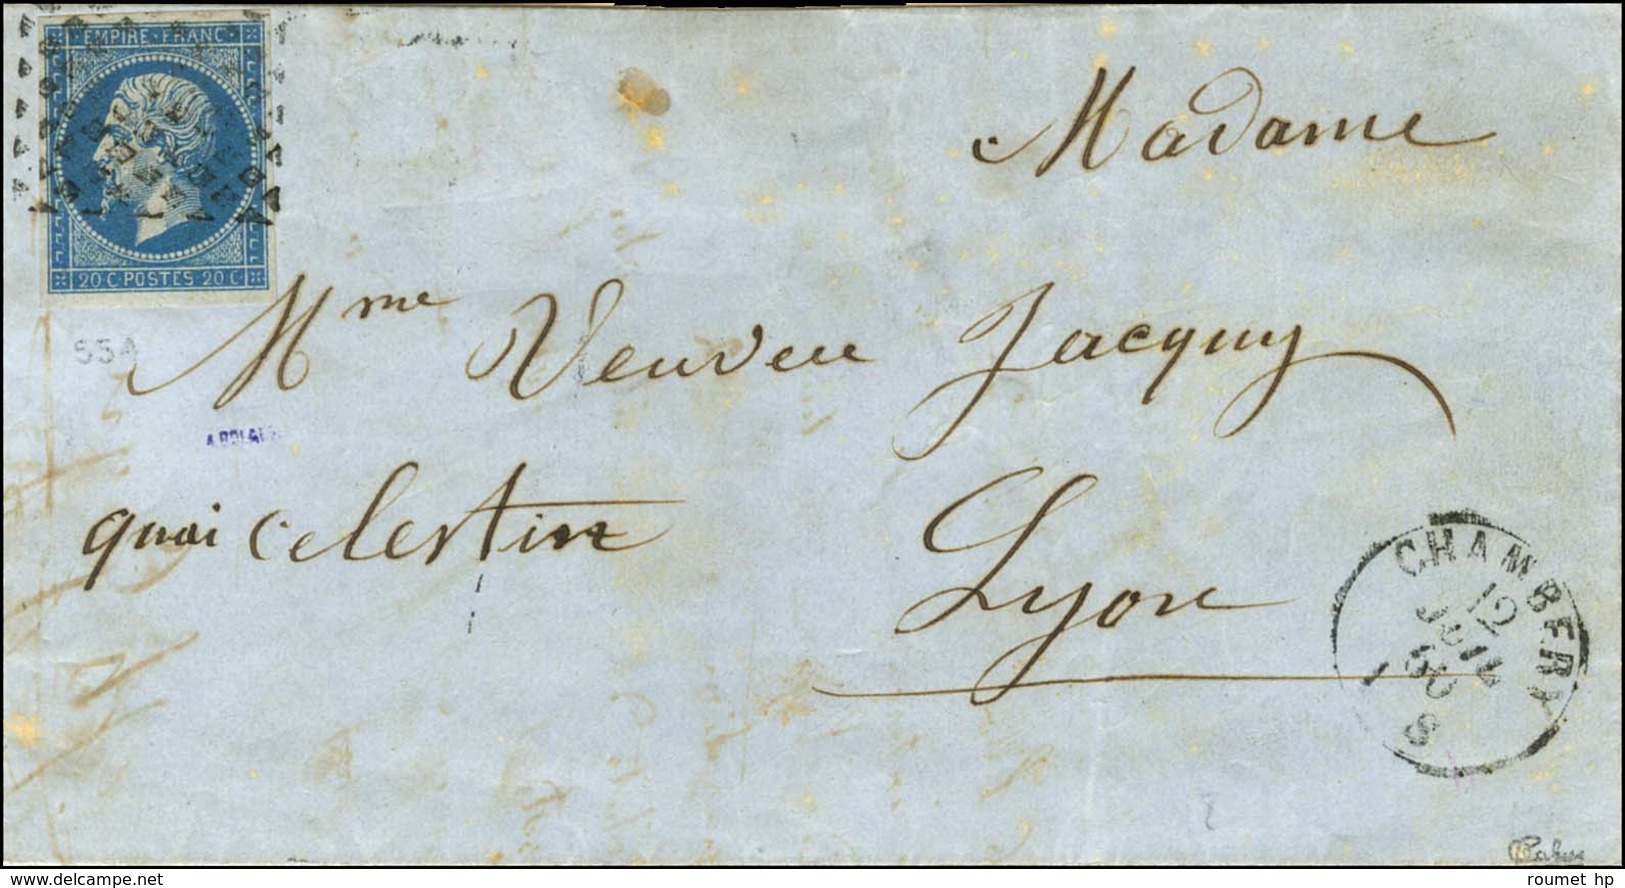 EMPIRE · FRANC
20 · C · POSTES 20 C ·
Madame
Mme Veuveu Jacquy
quai Celestin
Lyon
554
CHAMBERY
12
JUIN
60
8
delcampe.net
roumet hp